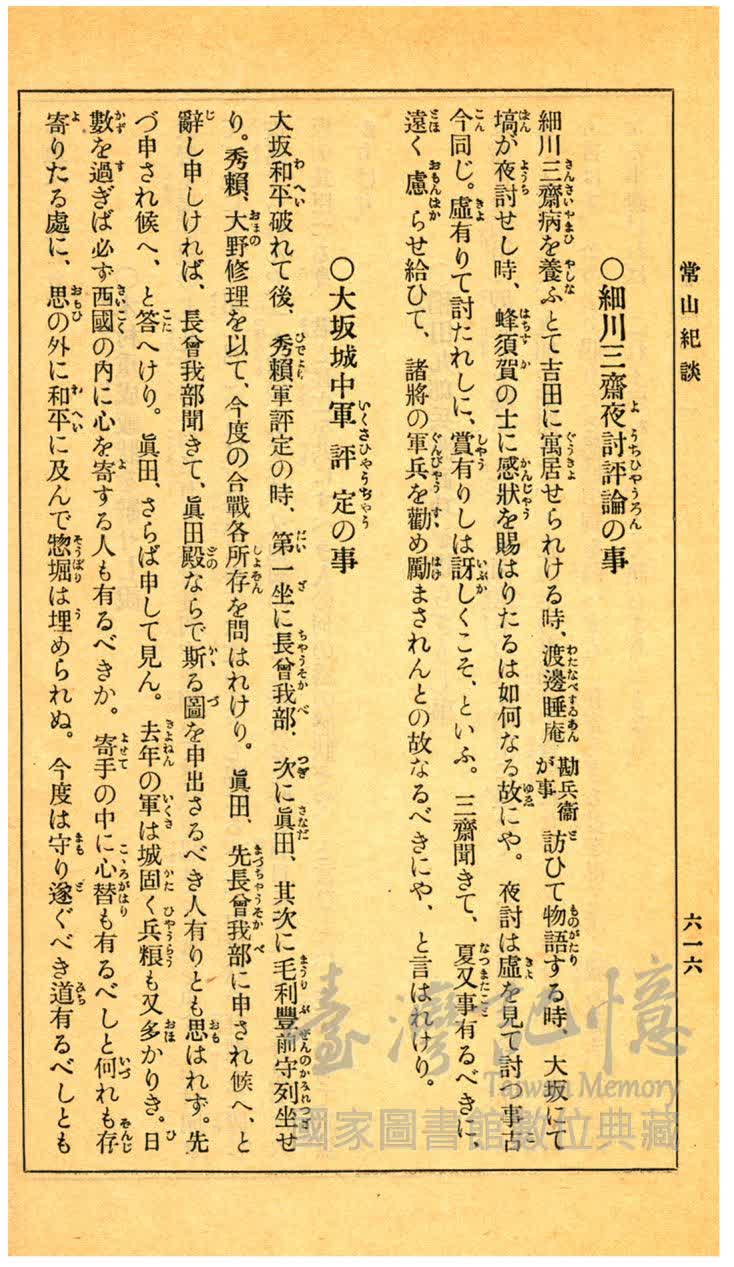 常山紀談
六一六
〇細川三齋夜討評論の事
細川三齋病を養ふとて吉田に寓居せられける時、渡邊睡庵勘兵衞が事訪ひて物語する時、大坂にて
塙が夜討せし時、蜂須賀の士に感狀を賜はりたるは如何なる故にや。夜討は虛を見て討つ事古
今同じ。虛有りて討たれしに、賞有りしは訝しくこそ、といふ。三齋聞きて、夏又事有るべきに、
遠く慮らせ給ひて、諸將の軍兵を勸め勵まされんとの故なるべきにや、と言はれけり。
〇大坂城中軍評定の事
大坂和平破れて後、秀賴軍評定の時、第一坐に長曾我部、次に眞田、其次に毛利豐前守列坐せ
り。秀賴、大野修理を以て、今度の合戰各所存を問はれけり。眞田、先長曾我部に申され候へ、と
辭し申しければ、長曾我部聞きて、眞田殿ならで斯る圖を申出さるべき人有りとも思はれず。先
づ申され候へ、と答へけり。眞田、さらば申して見ん。去年の軍は城固く兵粮も又多かりき。日
數を過ぎば必ず西國の内に心を寄する人も有るべきか。寄手の中に心替も有るべしと何れも存
寄りたる處に、思の外に和平に及んで惣堀は埋められぬ。今度は守り遂ぐべき道有るべしとも
臺灣記憶
Taiwan Memory
國家圖書館數位典藏